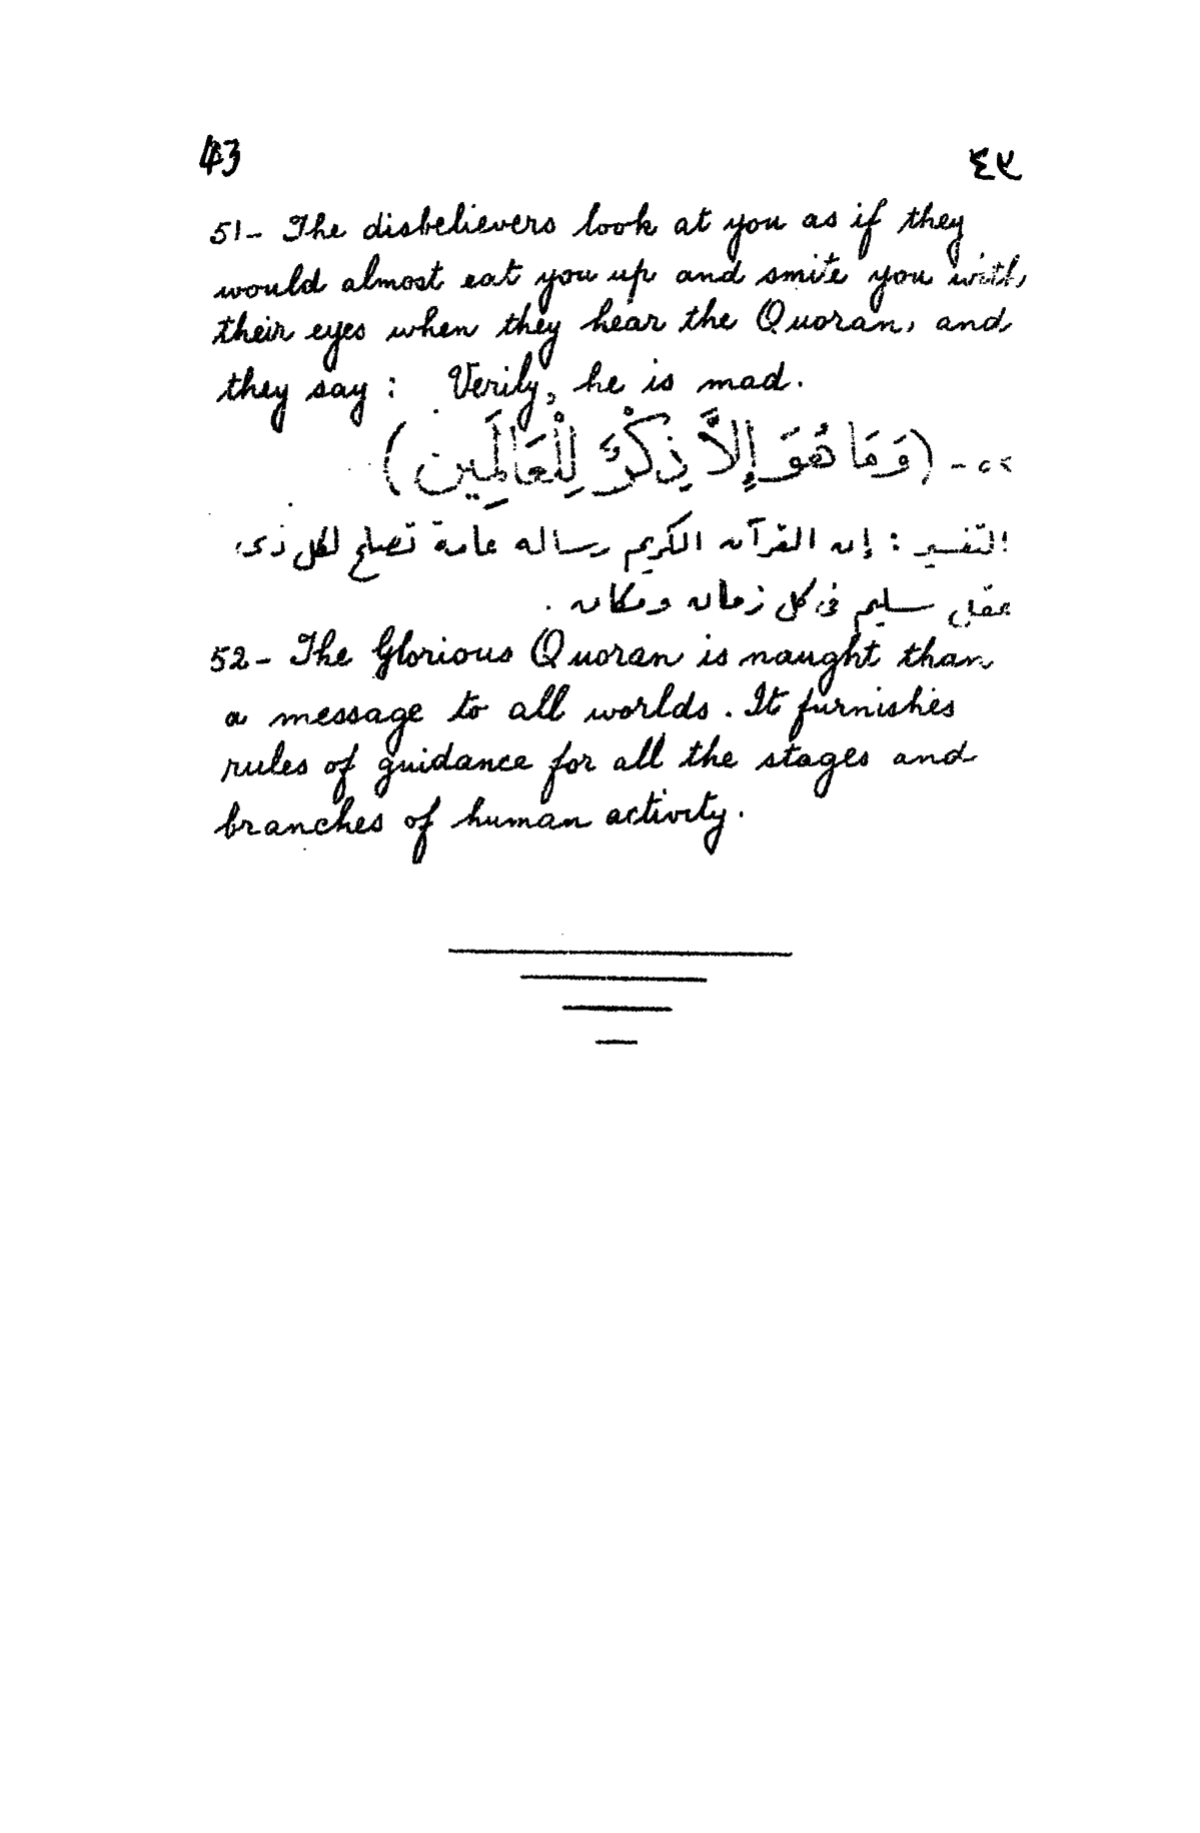 43
٤٣
51- The disbelievers look at you as if they
would almost eat you up and smite you with
their eyes when they hear the Quoran, and
they say : Verily, he is mad.
٥٢- (وَمَا هُوَ إِلاَّ ذِكْرٌ لِلْعَالَمِين)
التفسير : إن القرآن الكريم رساله عامة تصلح لكل ذى
عقل سليم فى كل زمان ومكان .
52- The Glorious Quoran is naught than
a message to all worlds. It furnishes
rules of guidance for all the stages and
branches of human activity.